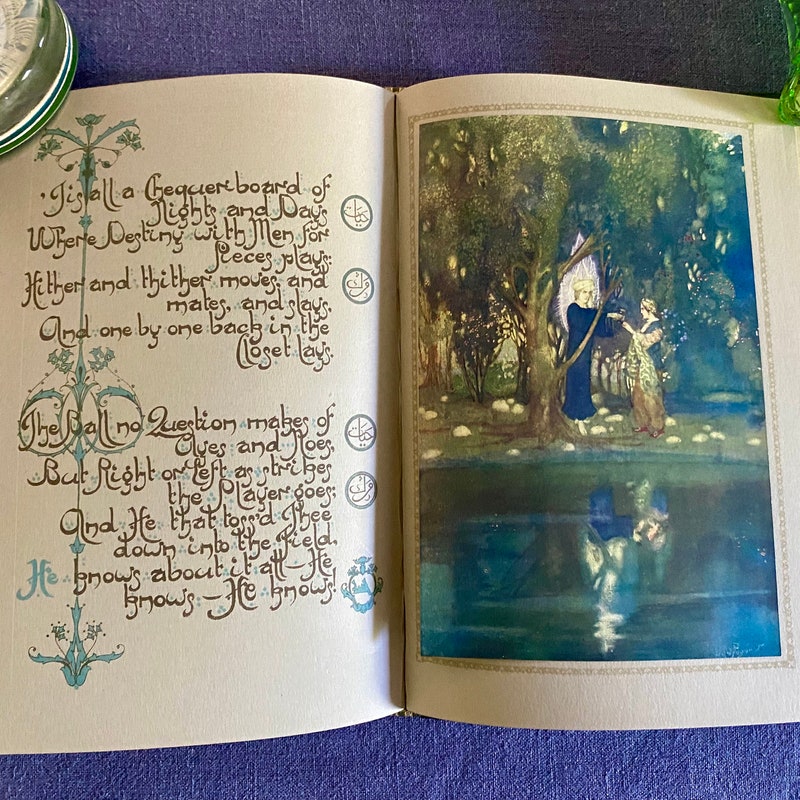 'Tis all a Chequer-board of
Nights and Days
Where Destiny with Men for
Pieces plays:
Hither and thither moves, and
mates, and slays,
And one by one back in the
Closet lays.
The Ball no Question makes of
Ayes and Noes,
But Right or Left as strikes
the Player goes;
And He that toss'd Thee
down into the Field,
He knows about it all—He
knows—He knows!